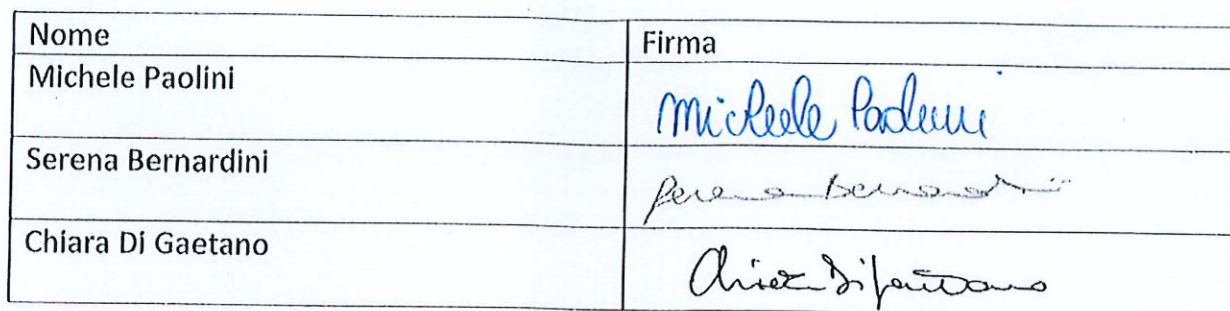 Nome Firma
Michele Paolini Michele Paolini
Serena Bernardini Serena Bernardini
Chiara Di Gaetano Chiara Di Gaetano